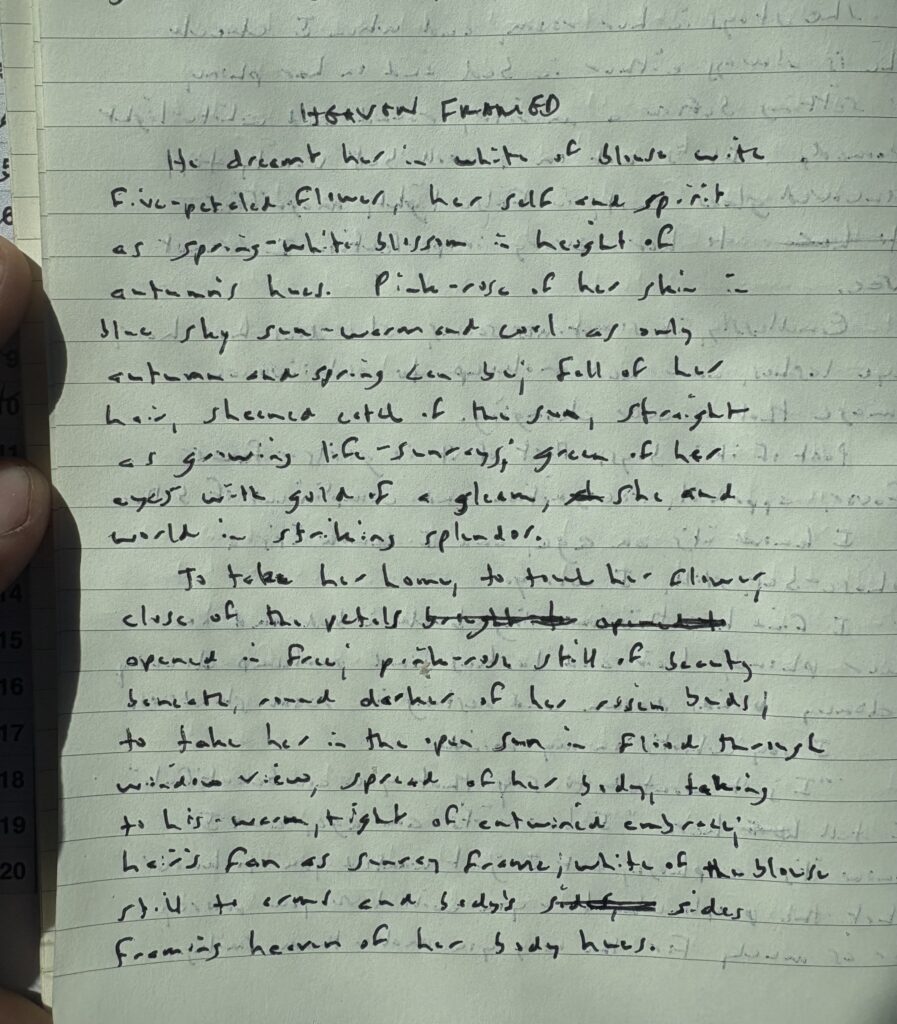 HEAVEN FRAMED
He dreamt her in white of blouse with
five-petaled flower, her self and spirit
as spring-white blossom in height of
autumn's hues. Pink-rose of her skin in
blue sky sun-warm and cool as only
autumn and spring can be; fall of her
hair, sheened catch of the sun, straight
as growing life-sunrays; green of her
eyes with gold of a gleam, she and
world in striking splendor.
To take her home, to touch her flower
close of the petals
opened in free; pink-rose still of beauty
beneath, round darker of her risen buds;
to take her in the open sun in flood through
window view, spread of her body, taking
to his-warm, tight of entwined embrace;
hair's fan as sunray frame; white of the blouse
still to arms and body's sides
framing heaven of her body hues.
5
6
9
10
11
14
15
16
17
18
19
20